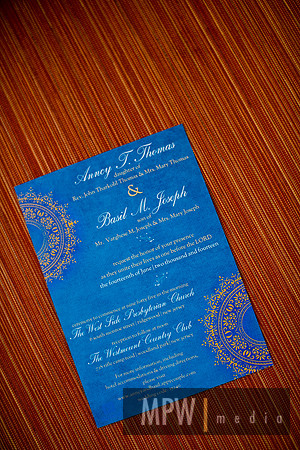 Anncy T. Thomas
daughter of
Rev. John Thurkold Thomas & Mrs. Mary Thomas
&
Basil M. Joseph
son of
Mr. Varghese M. Joseph & Mrs. Mary Joseph
request the honor of your presence
as they unite their lives as one before the LORD
the fourteenth of June | two thousand and fourteen
forty five in the morning
The West Side Presbyterian Church
6 south monroe street | ridgewood | new jersey
reception to follow at
The Westmount Country Club
woodland park | new jersey
For more information, including
hotel accommodations & driving directions,
MPW | media